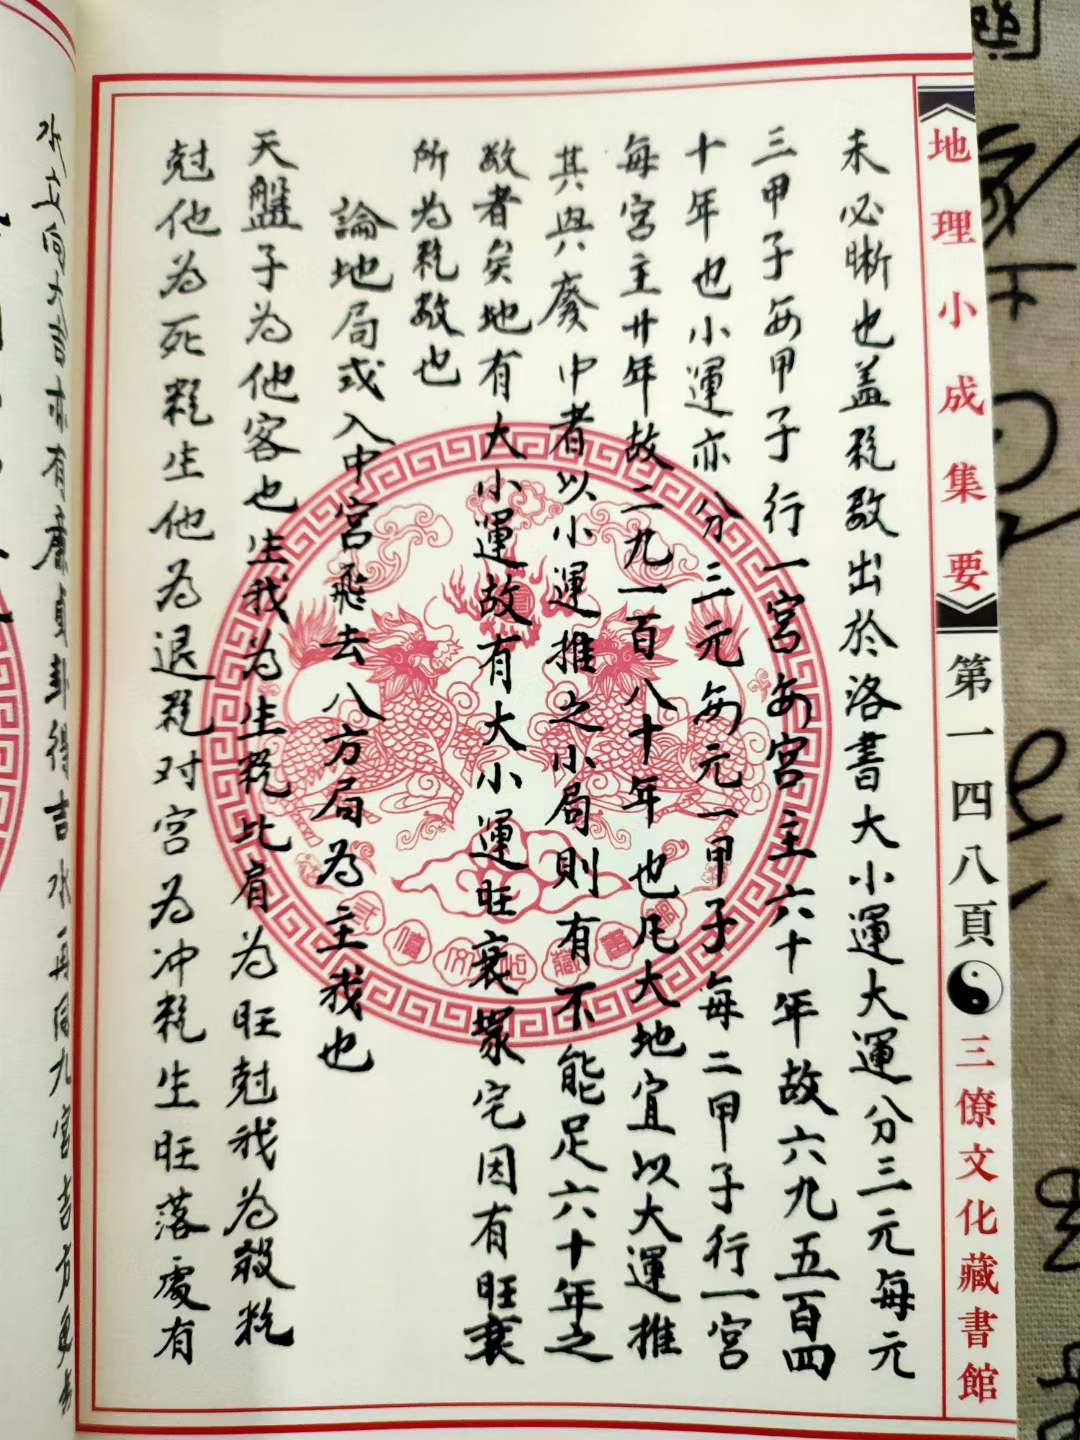 地理小成集要
第一四八頁
三僚文化藏書館
未必晰也盖氣数出於洛書大小運大運分三元每元
三甲子每甲子行一宮每宮主六十年故六九五百四
十年也小運亦分三元每元一甲子每二甲子行一宮
每宮主廿年故二九一百八十年也凡大地宜以大運推
其興廢中者以小運推之小局則有不能足六十年之
数者矣地有大小運故有大小運旺衰塚宅因有旺衰
所為氣数也
論地局或入中宮飛去八方局為主我也
天盤子為他客也生我為生氣比肩為旺尅我為殺氣
尅他為死氣生他為退氣对宮為冲氣生旺落處有
水立向大吉亦有廉貞卦得吉水再同九宮吉方更